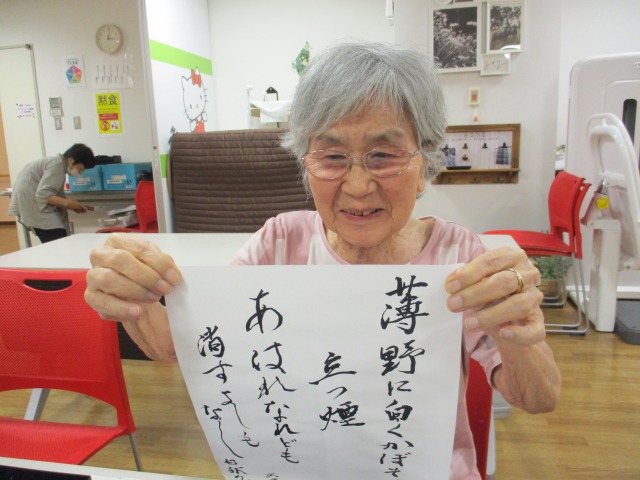 黙食
薄野に白くかぼそ
立つ煙
あはれなれども
消すよしも
なし